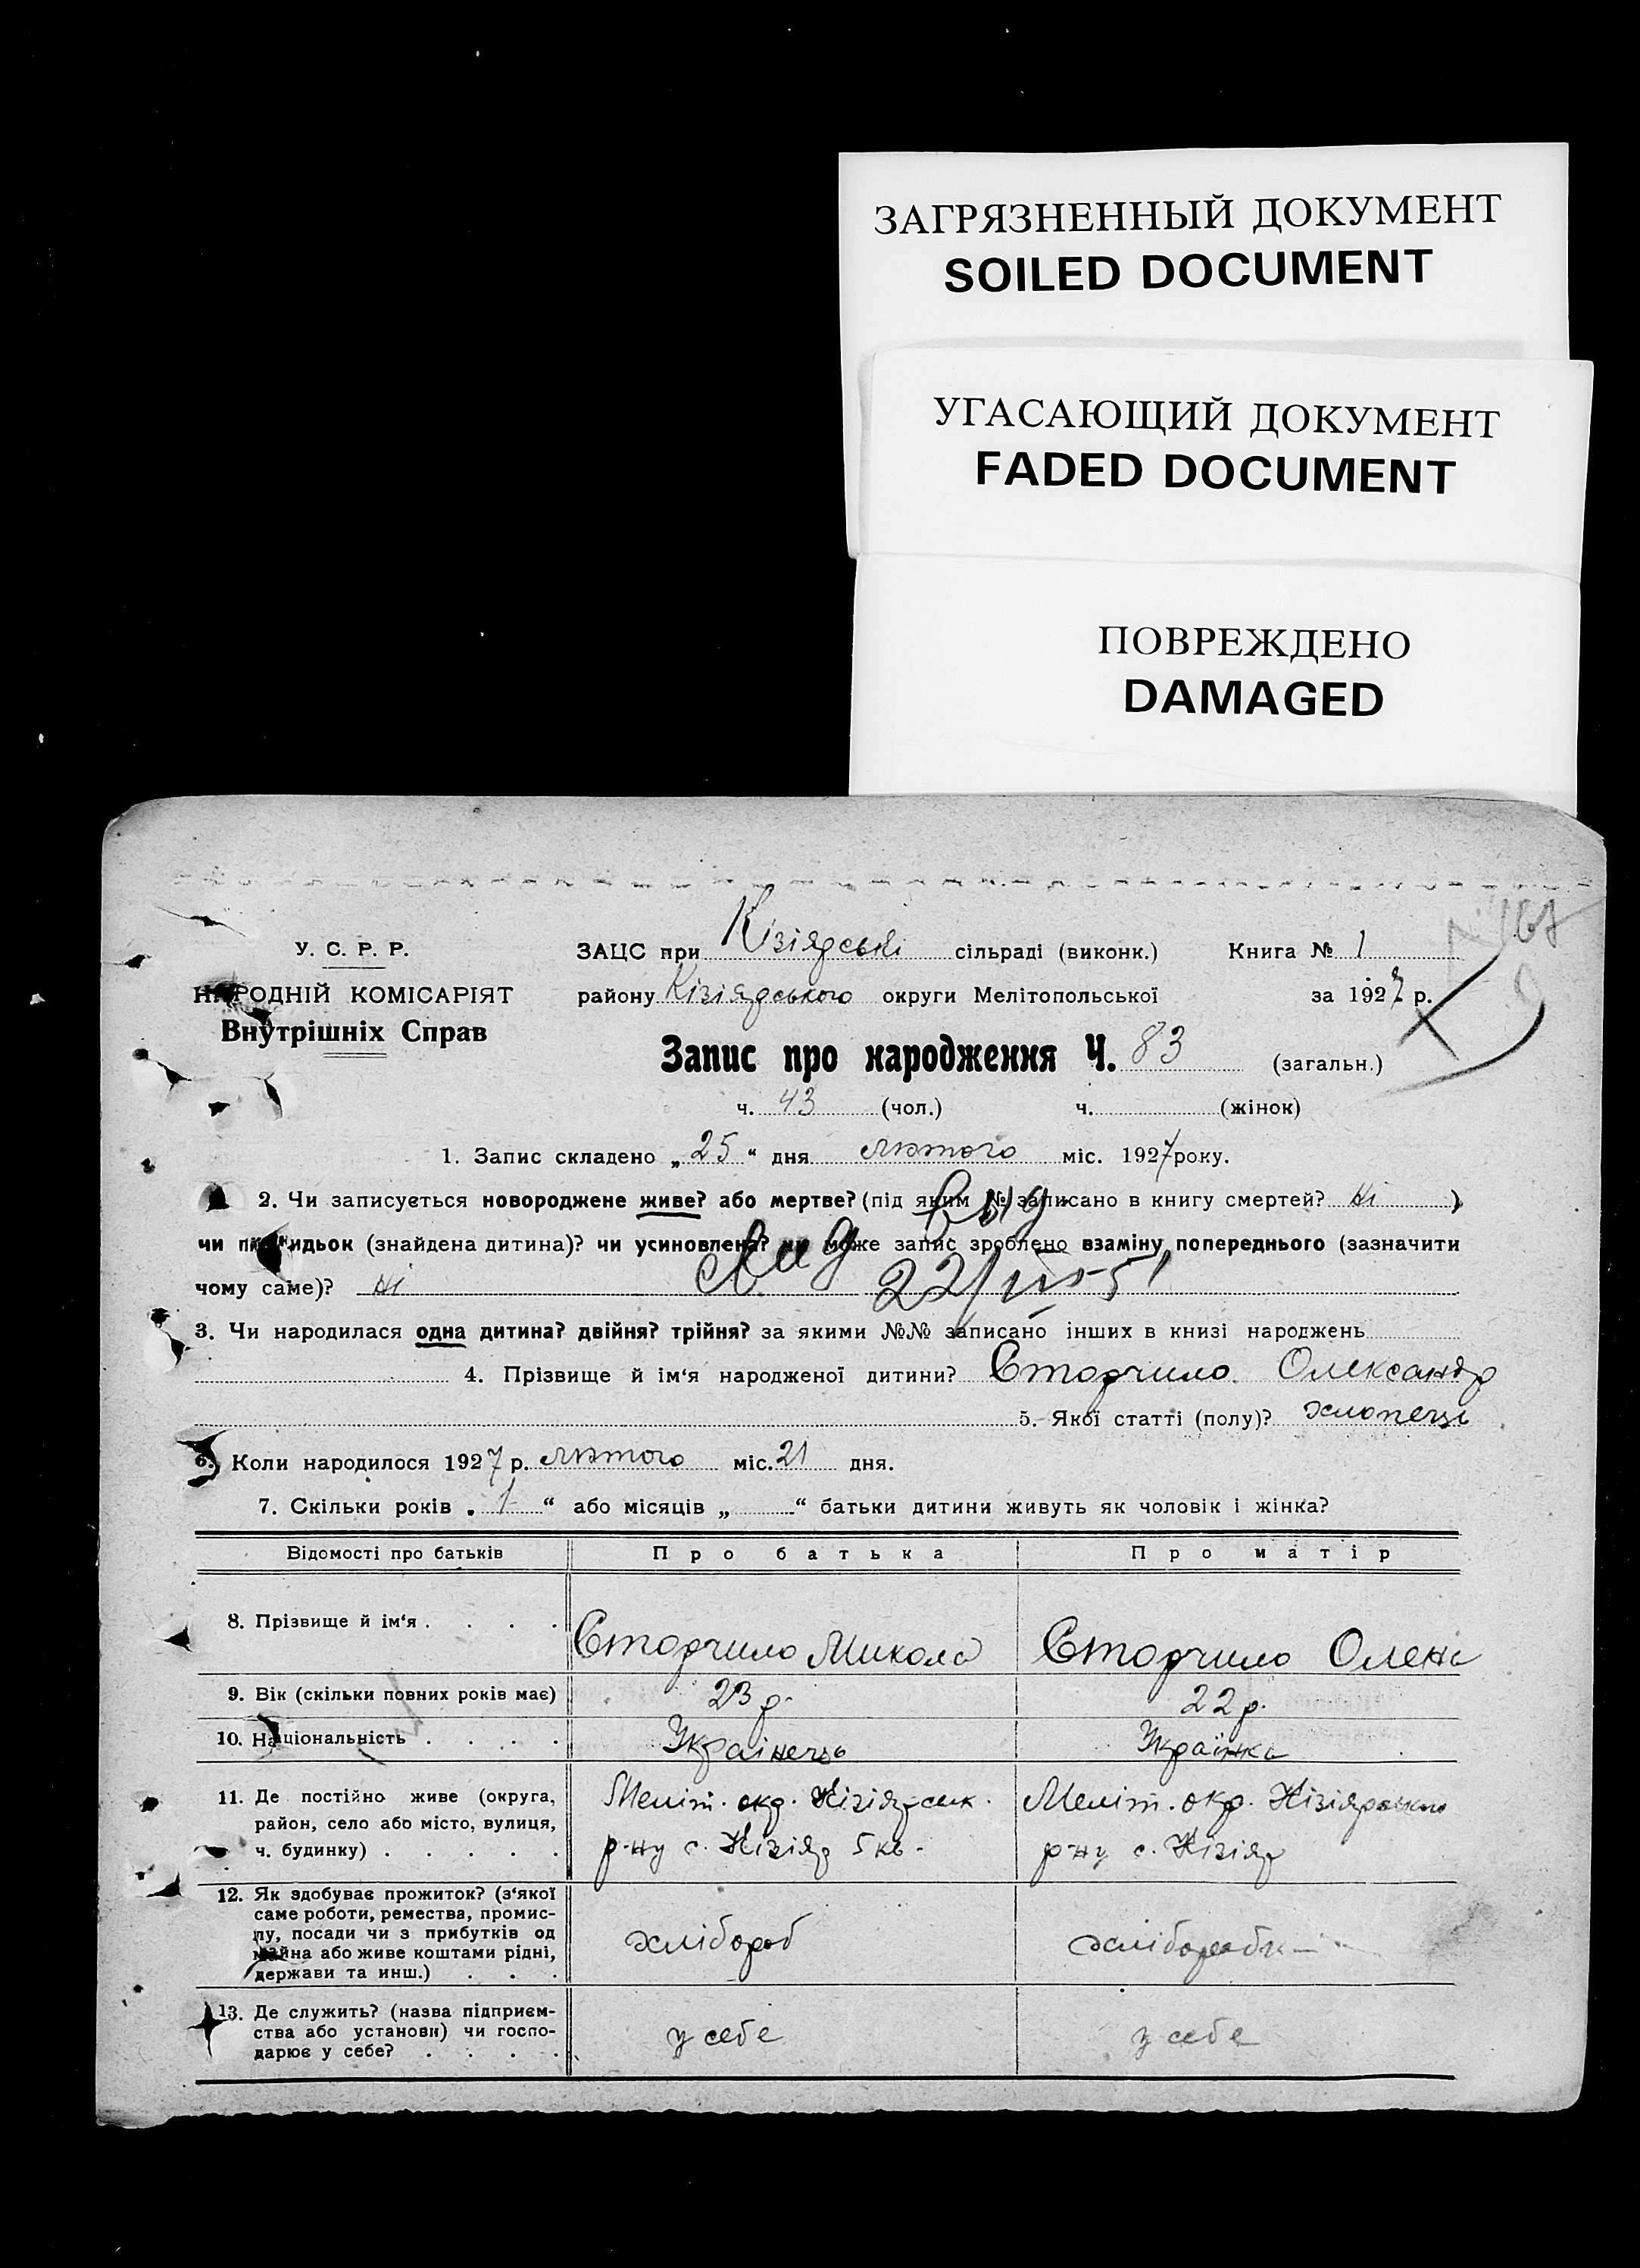 ЗАГРЯЗНЕННЫЙ ДОКУМЕНТ
SOILED DOCUMENT
УГАСАЮЩИЙ ДОКУМЕНТ
FADED DOCUMENT
ПОВРЕЖДЕНО
DAMAGED
У. С. Р. Р.
НАРОДНІЙ КОМІСАРІЯТ
Внутрішніх Справ
ЗАЦС при Кізіярській сільраді (виконк.) Книга № 1
району Кізіярського округи Мелітопольської за 1927 р.
Запис про народження Ч. 83 (загальн.)
ч. 43 (чол.) ч. (жінок)
1. Запис складено „25“ дня лютого міс. 1927 року.
2. Чи записується новороджене живе? або мертве? (під яким № записано в книгу смертей? ні )
чи підкидьок (знайдена дитина)? чи усиновлена? чи може запис зроблено взаміну попереднього (зазначити
чому саме)? ні
3. Чи народилася одна дитина? двійня? трійня? за якими №№ записано інших в книзі народжень
4. Прізвище й ім‘я народженої дитини? Сторчило Олександр
5. Якої статті (полу)? хлопець
6. Коли народилося 1927 р. лютого міс. 21 дня.
7. Скільки років „1“ або місяців „ “ батьки дитини живуть як чоловік і жінка?
Відомості про батьків Про батька Про матір
8. Прізвище й ім‘я . . . . Сторчило Микола Сторчило Олена
9. Вік (скільки повних років має) 23 р. 22 р.
10. Національність . . . . Українець Українка
11. Де постійно живе (округа, район, село або місто, вулиця, ч. будинку) . . . . .
Меліт. окр. Кізіярськ.
р-ну с. Кізіяр 5 кв.
Меліт. окр. Кізіярського
р-ну с. Кізіяр
12. Як здобуває прожиток? (з‘якої
саме роботи, ремества, промис-
лу, посади чи з прибутків од
майна або живе коштами рідні,
держави та инш.) . . .
хлібороб
хліборобка
13. Де служить? (назва підприєм-
ства або установи) чи госпо-
дарює у себе? . . . .
у себе
у себе